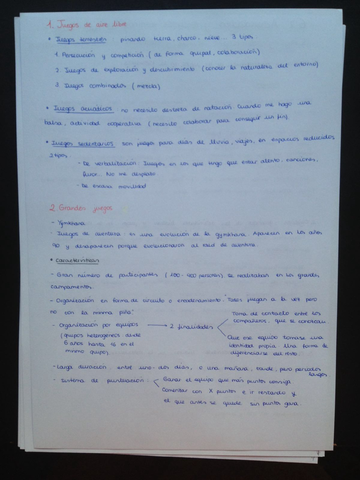 1. Juegos de aire libre
• Juegos terrestres - pisando tierra, charco, nieve. 3 tipos
1. Persecución y competición (de forma grupal, colaboración)
2. Juegos de exploración y descubrimiento (conocer la naturaleza del entorno)
3. Juegos combinados (mezcla)
• Juegos acuáticos no necesito destreza de natación. Cuando me hago una
balsa, actividad cooperativa (necesito colaborar para conseguir un fin)
• Juegos sedentarios son juegos para días de lluvia, viajes, en espacios reducidos
3 tipos
- De verbalización. Juegos en los que tengo que estar atento, canciones,
- De escasa movilidad
2. Grandes juegos
- Gymkhana
- Juegos de aventura es una evolución de la gymkhana. Aparecen en los años
90 y desaparecen porque evolucionaron al raid de aventura
• Características
- Gran número de participantes (200 - 400 personas) se realizaban en los grandes
campamentos.
- Organización en forma de circuito o encadenamiento. Todos juegan a la vez pero
no con la misma prueba
- Organización por equipos → 2 finalidades
(grupos heterogéneos desde
6 años hasta 16 en el
mismo grupo)
Toma de contacto entre los
compañeros, que se conozcan
Que ese equipo tomase una
identidad propia. Una forma de
diferenciarse del resto
- Larga duración entre uno - dos días, o una mañana, tarde, pero periodos
largos
- Sistema de puntuación
Ganar el equipo que más puntos consiga
Comenzar con X puntos e ir restando y
el que antes se quede sin puntos gana.